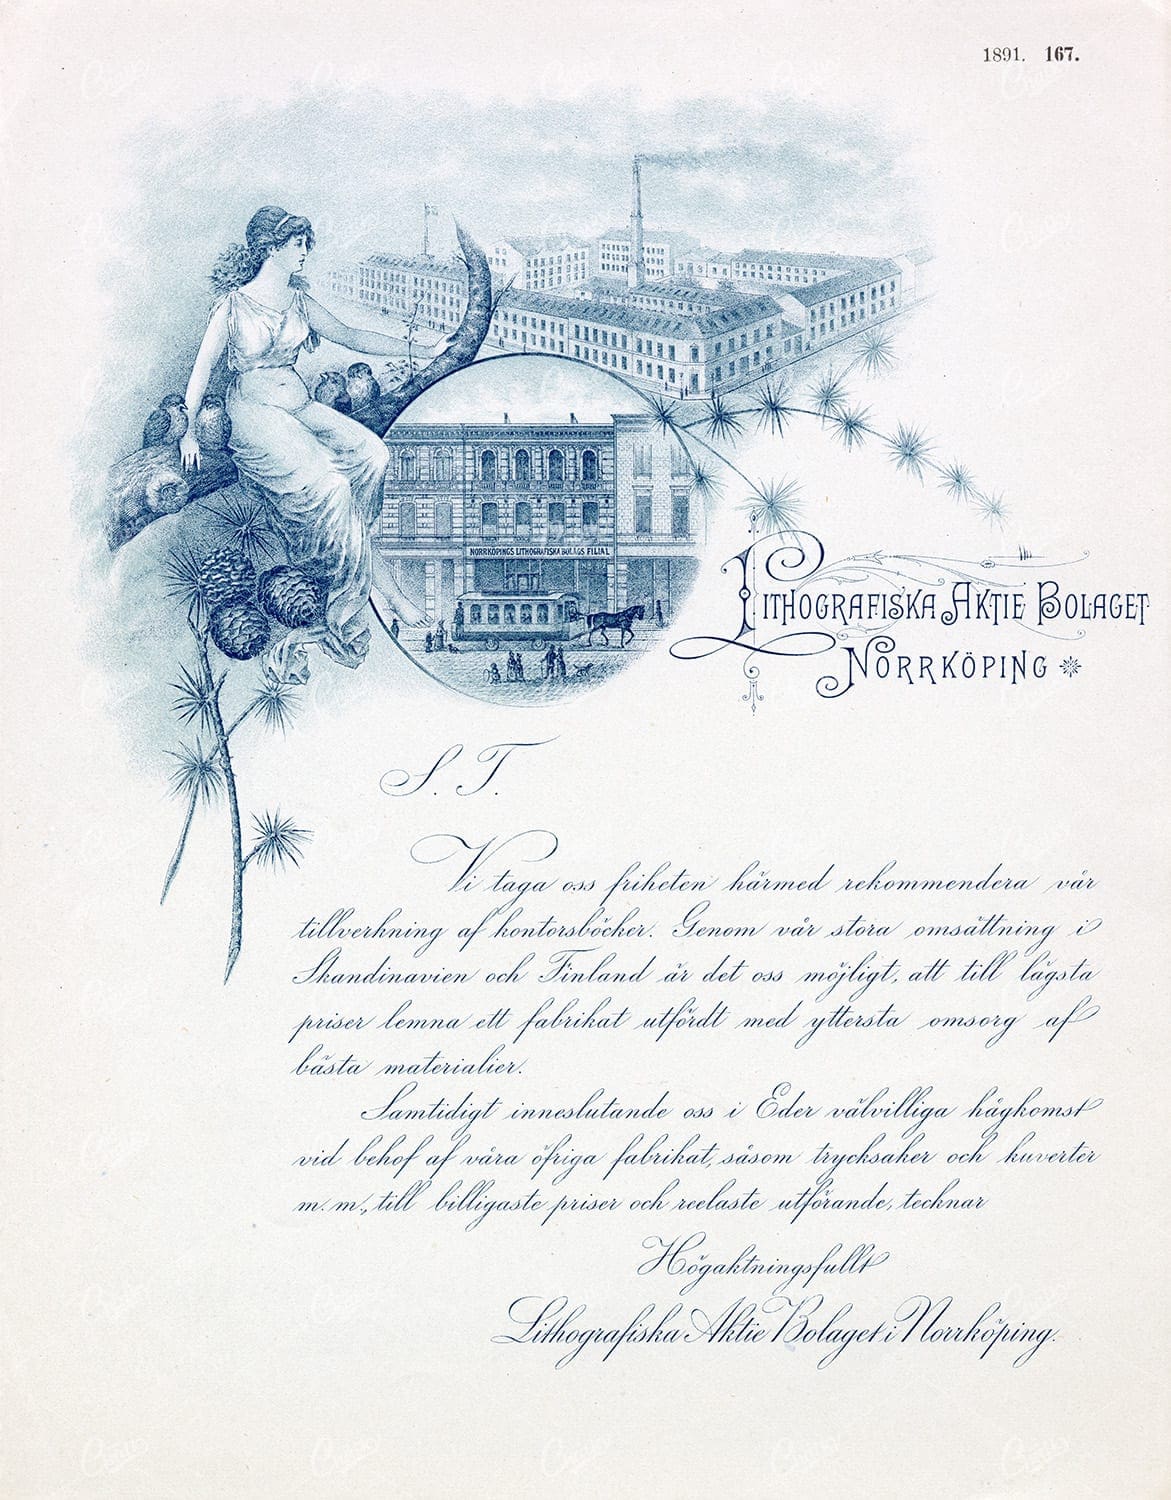 1891. 167.
NORRKÖPINGS LITHOGRAFISKA BOLAGS FILIAL
LITHOGRAFISKA AKTIE BOLAGET
NORRKÖPING
S. T.
Vi taga oss friheten härmed rekommendera vår
tillverkning af kontorsböcker. Genom vår stora omsättning i
Skandinavien och Finland är det oss möjligt, att till lägsta
priser lemna ett fabrikat utfördt med yttersta omsorg af
bästa materialier.
Samtidigt inneslutande oss i Eder välvilliga hågkomst
vid behof af våra öfriga fabrikat, såsom trycksaker och kuverter
m. m., till billigaste priser och reelaste utförande, tecknar
Högaktningsfullt
Lithografiska Aktie Bolaget i Norrköping.